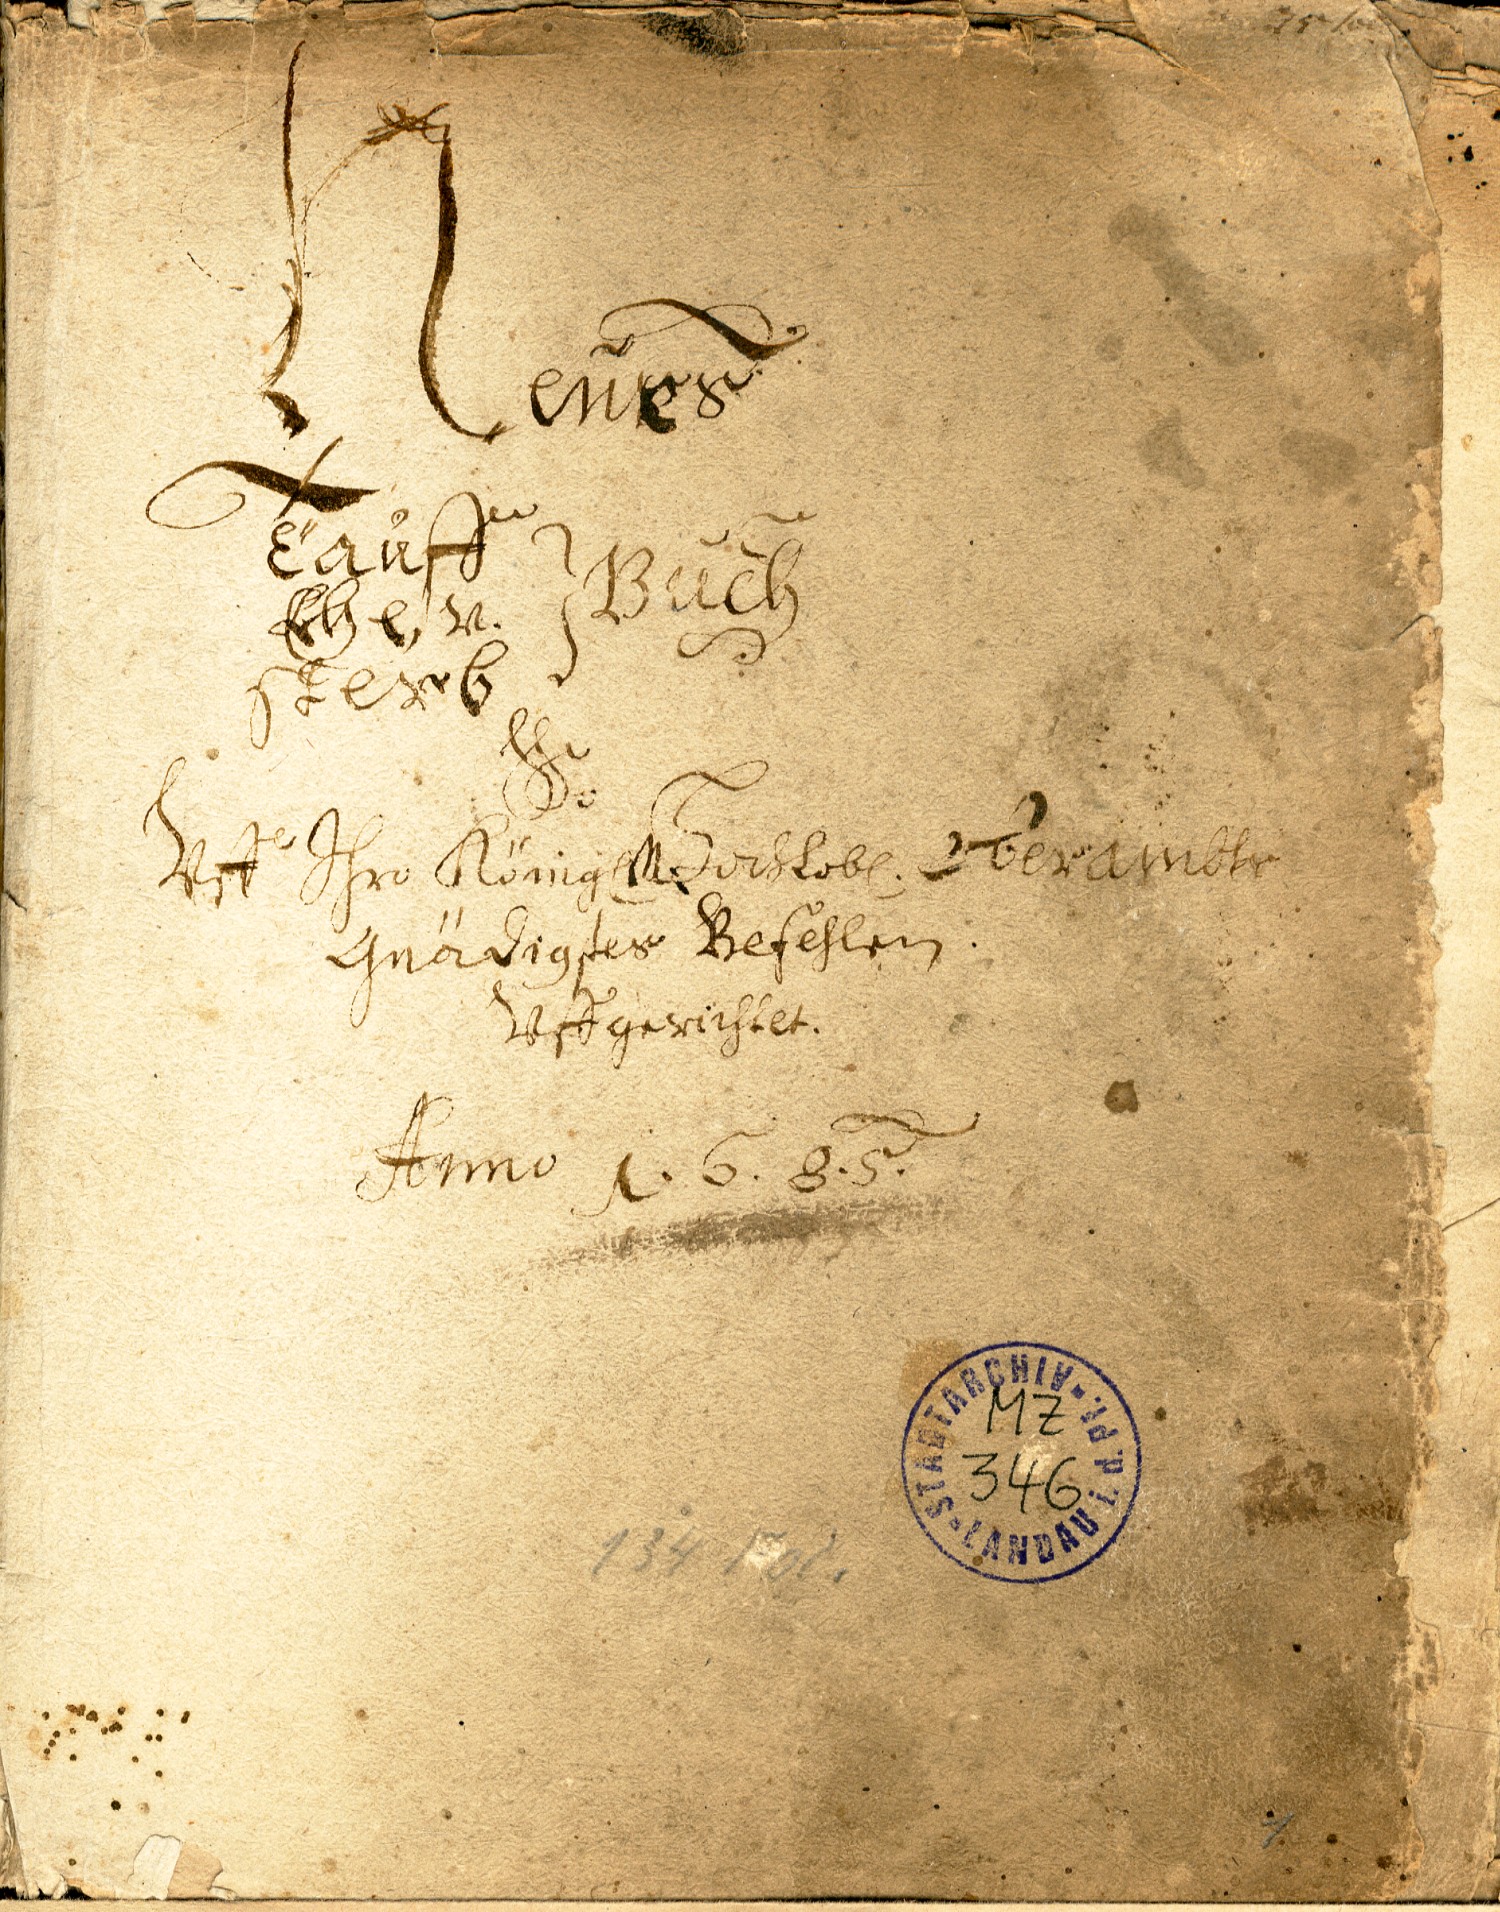 Neües
Tauff
Ehe, v.
Sterb
} Buch
So
Vff Ihro Königl. M. Hochlobl. Oberambts
Gnädigstes Befehlen.
Vffgerichtet.
Anno 1. 6. 8. 5.
STADTARCHIV LANDAU i. d. Pf.
MZ
346
134 Fol.